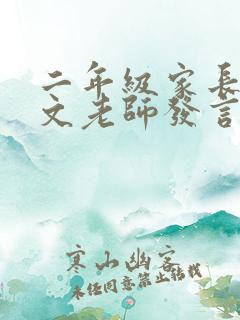 二年級家長
文老師發言
寒山幽客
未經同意禁止轉載